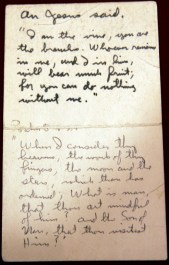 An Jesus said,
"I am the vine, you are
the branches. Whoever remains
in me, and I in him,
will bear much fruit;
for you can do nothing
without me."
"When I consider thy
heavens, the work of thy
fingers, the moon and the
stars, which thou has
ordained; What is man,
that thou art mindful
of him? and the Son of
Man, that thou visitest
Him?"